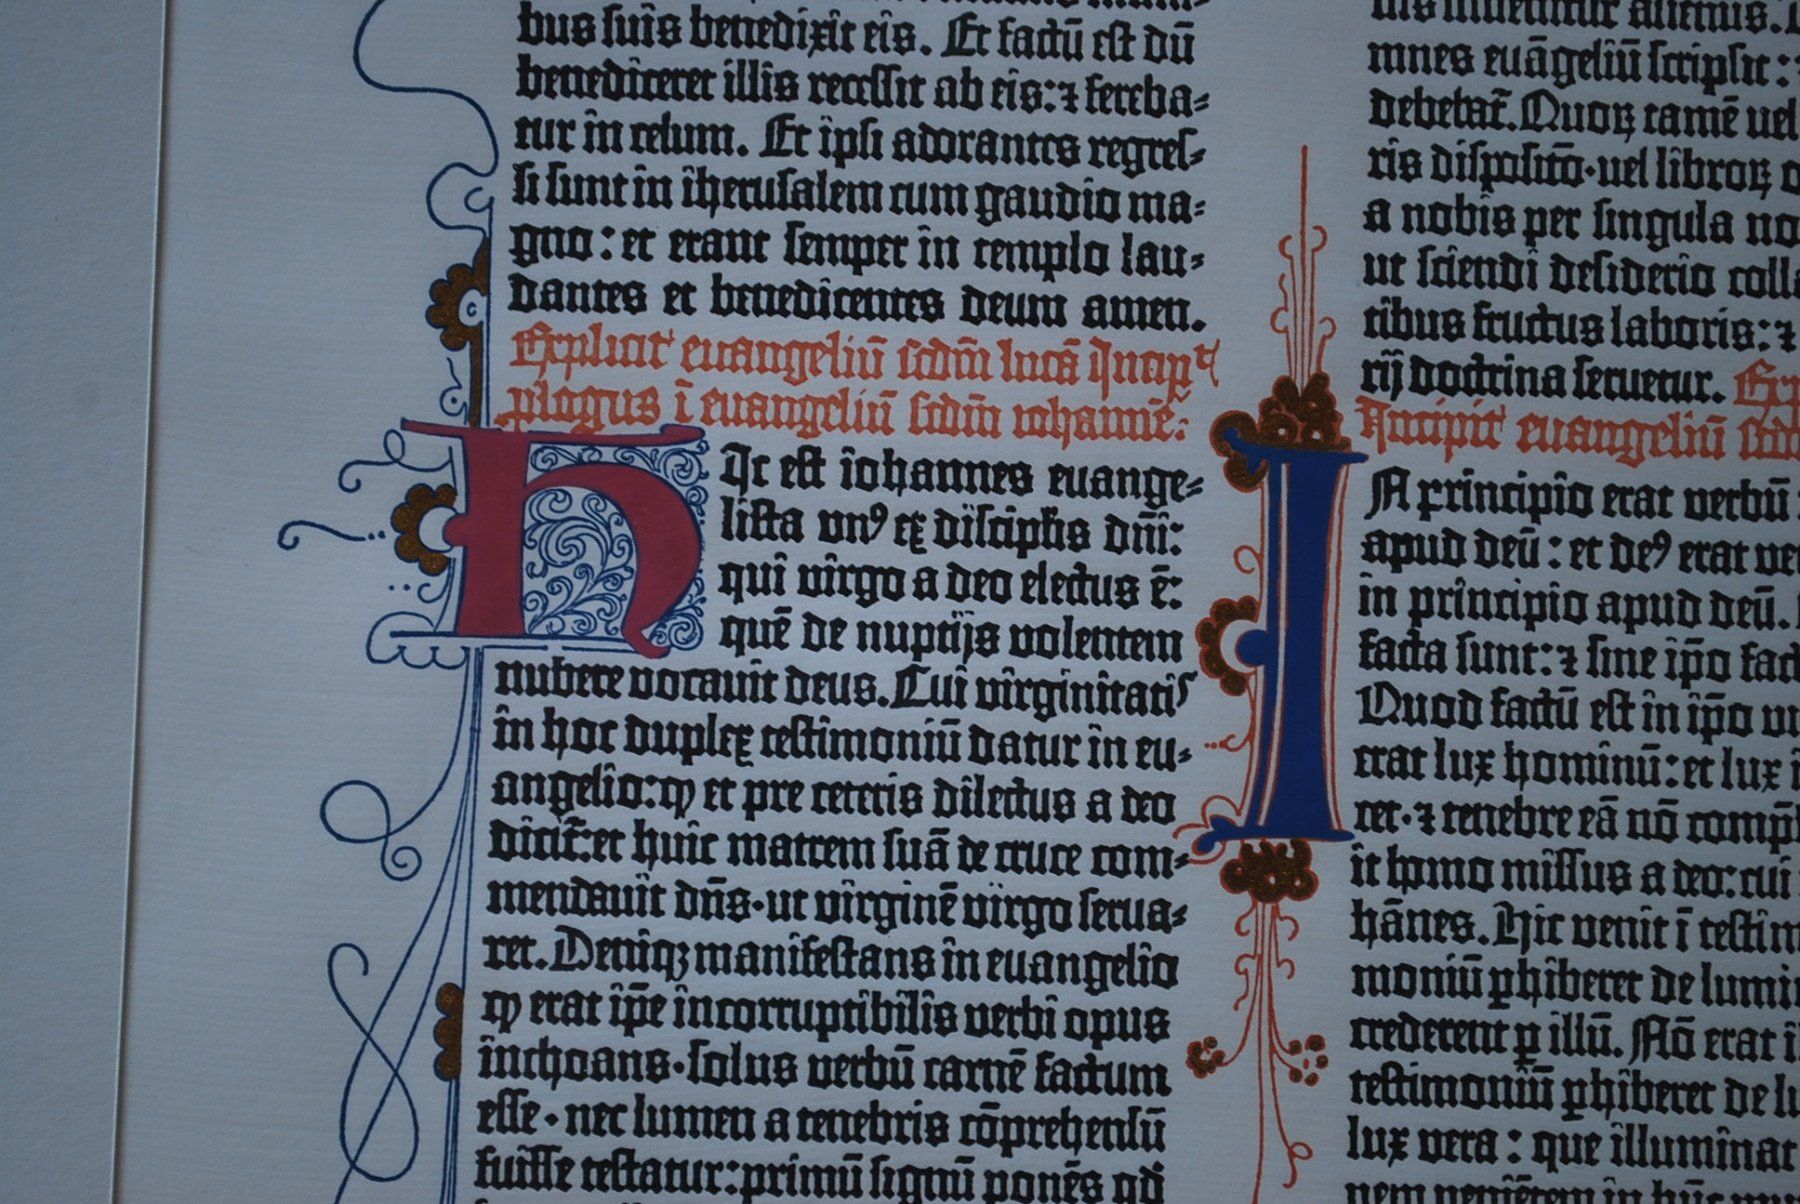 bus suis benedixit eis. Et factū est dū
benediceret illis recessit ab eis: ⁊ fereba-
tur in celum. Et ipsi adorantes regres-
si sunt in iherusalem cum gaudio ma-
gno: et erant semper in templo lau-
dantes et benedicentes deum amen.
Explicit euangeliū scdm̄ lucā Incipt
plogus ī euangeliū scdm̄ iohannē:
Hic est iohannes euange-
lista vnꝰ ex discipulis dn̄i:
qui virgo a deo electus ē:
quē de nuptijs volentem
nubere vocauit deus. Cui virginitatis
in hoc duplex testimoniū datur in eu-
angelio: ꝙ et pre ceteris dilectus a deo
dicit᷑: et huic matrem suā de cruce com-
mendauit dn̄s· ut virginē virgo serua-
ret. Deniqꝫ manifestans in euangelio
ꝙ erat ip̄e incorruptibilis verbi opus
inchoans· solus verbū carnē factum
esse· nec lumen a tenebris cōprehensū
fuisse testatur: primū signū ponēs qd̄
uis inuenitur alienus.
mnes euāgeliū scripsit:
debebat᷑. Quoꝝ tamē uel
ris disposito᷑· uel libroꝝ
a nobis per singula
ut sciendi desiderio
tibus fructus laboris: ⁊
rij doctrina seruetur.
Incipit euangeliū
IN principio erat verbū
apud deū: et deꝰ erat
in principio apud deū.
facta sunt: ⁊ sine ip̄o
Quod factū est in ip̄o
erat lux hominū: et lux
cet· ⁊ tenebre eā nō
it homo missus a deo: cui
hānes. Hic venit ī
moniū ꝑhiberet de
crederent ꝑ illū. Nō erat
testimoniū ꝑhiberet de
lux vera: que illuminat